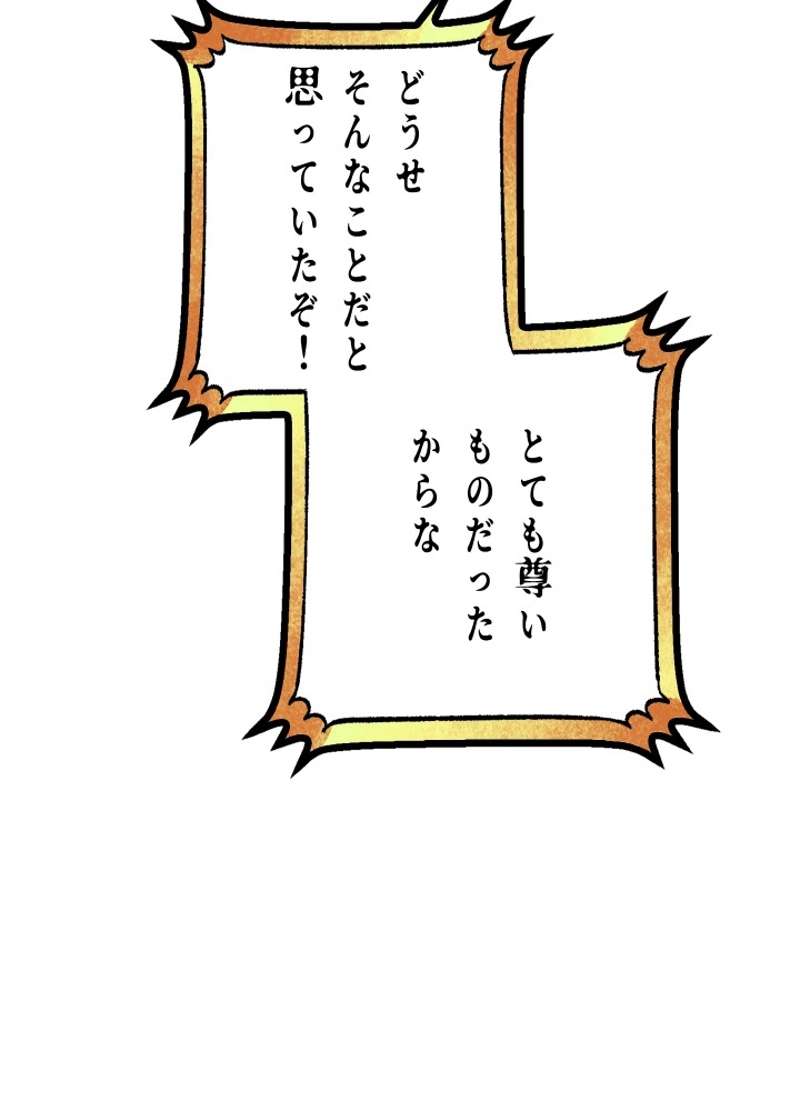 どうせ
そんなことだと
思っていたぞ!
とても尊い
ものだった
からな